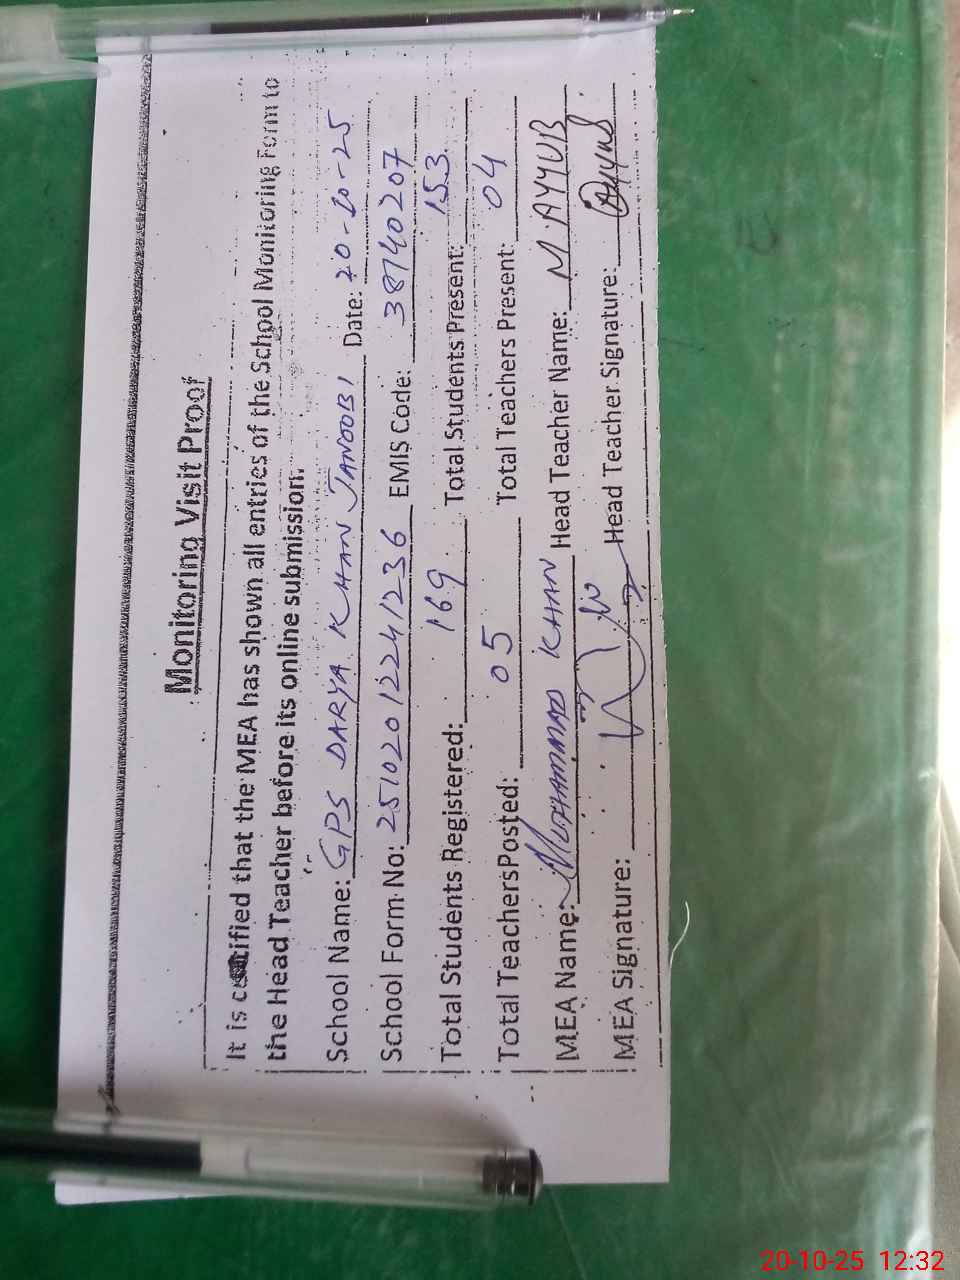 Monitoring Visit Proof
It is certified that the MEA has shown all entries of the School Monitoring Form to
the Head Teacher before its online submission.
School Name: GPS DARYA KHAN JANOOBI Date: 20-10-25
School Form No: 25102012241236 EMIS Code: 38740207
Total Students Registered: 169 Total Students Present: 153
Total Teachers Posted: 05 Total Teachers Present: 04
MEA Name: MUHAMMAD KHAN Head Teacher Name: M AYYUB
MEA Signature: Head Teacher Signature: Ayyub
20-10-25 12:32